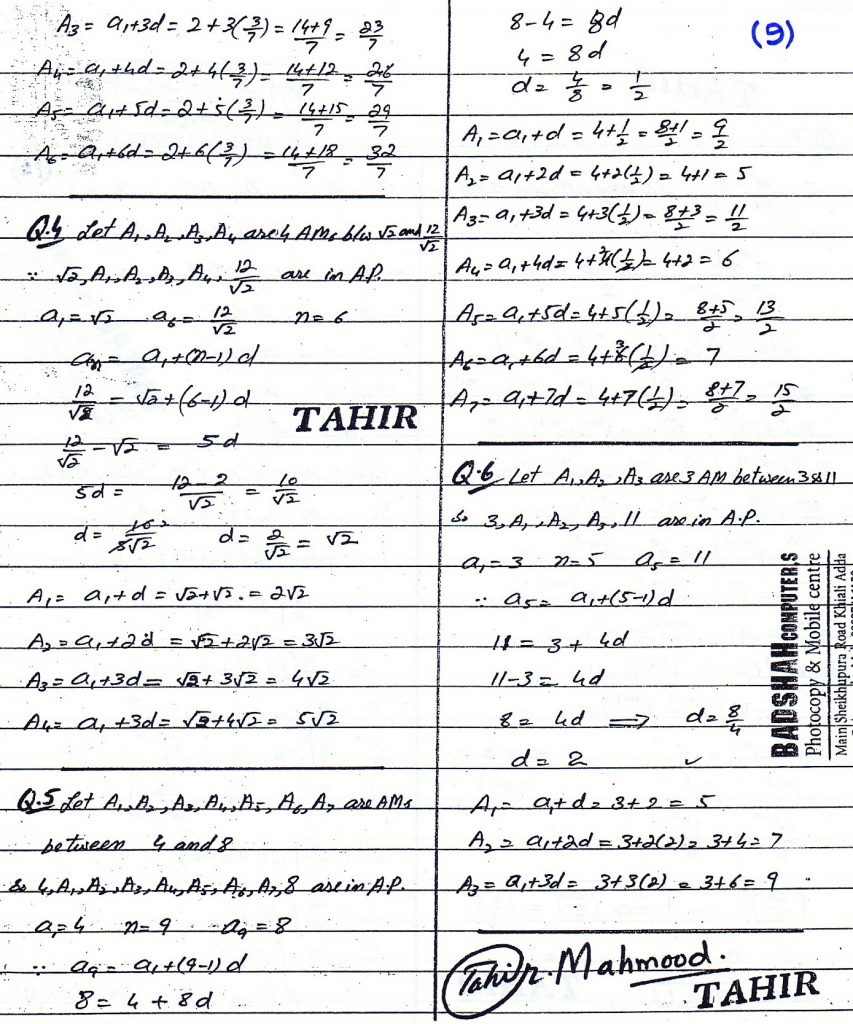 A₃ = a₁+3d = 2+3(3/7) = 14+9/7 = 23/7
A₄ = a₁+4d = 2+4(3/7) = 14+12/7 = 26/7
A₅ = a₁+5d = 2+5(3/7) = 14+15/7 = 29/7
A₆ = a₁+6d = 2+6(3/7) = 14+18/7 = 32/7
Q.4 Let A₁, A₂, A₃, A₄ are 4 AMs b/w √2 and 12/√2
∵ √2, A₁, A₂, A₃, A₄, 12/√2 are in A.P.
a₁ = √2 a₆ = 12/√2 n = 6
aₙ = a₁+(n-1)d
12/√2 = √2+(6-1)d
12/√2 - √2 = 5d
5d = 12-2/√2 = 10/√2
d = 10/5√2 d = 2/√2 = √2
A₁ = a₁+d = √2+√2 = 2√2
A₂ = a₁+2d = √2+2√2 = 3√2
A₃ = a₁+3d = √2+3√2 = 4√2
A₄ = a₁+3d = √2+4√2 = 5√2
Q.5 Let A₁, A₂, A₃, A₄, A₅, A₆, A₇ are AMs
between 4 and 8
So 4, A₁, A₂, A₃, A₄, A₅, A₆, A₇, 8 are in A.P.
a₁ = 4 n = 9 a₉ = 8
∵ a₉ = a₁+(9-1)d
8 = 4 + 8d
TAHIR
(9)
8-4 = 8d
4 = 8d
d = 4/8 = 1/2
A₁ = a₁+d = 4+1/2 = 8+1/2 = 9/2
A₂ = a₁+2d = 4+2(1/2) = 4+1 = 5
A₃ = a₁+3d = 4+3(1/2) = 8+3/2 = 11/2
A₄ = a₁+4d = 4+4(1/2) = 4+2 = 6
A₅ = a₁+5d = 4+5(1/2) = 8+5/2 = 13/2
A₆ = a₁+6d = 4+6(1/2) = 7
A₇ = a₁+7d = 4+7(1/2) = 8+7/2 = 15/2
Q.6 Let A₁, A₂, A₃ are 3 AM between 3 & 11
So 3, A₁, A₂, A₃, 11 are in A.P.
a₁ = 3 n = 5 a₅ = 11
∵ a₅ = a₁+(5-1)d
11 = 3 + 4d
11-3 = 4d
8 = 4d ⟹ d = 8/4
d = 2 ✓
A₁ = a₁+d = 3+2 = 5
A₂ = a₁+2d = 3+2(2) = 3+4 = 7
A₃ = a₁+3d = 3+3(2) = 3+6 = 9
Tahir Mahmood.
TAHIR
BADSHAH COMPUTER,S
Photocopy & Mobile centre
Main Sheikhupura Road Khiali Adda